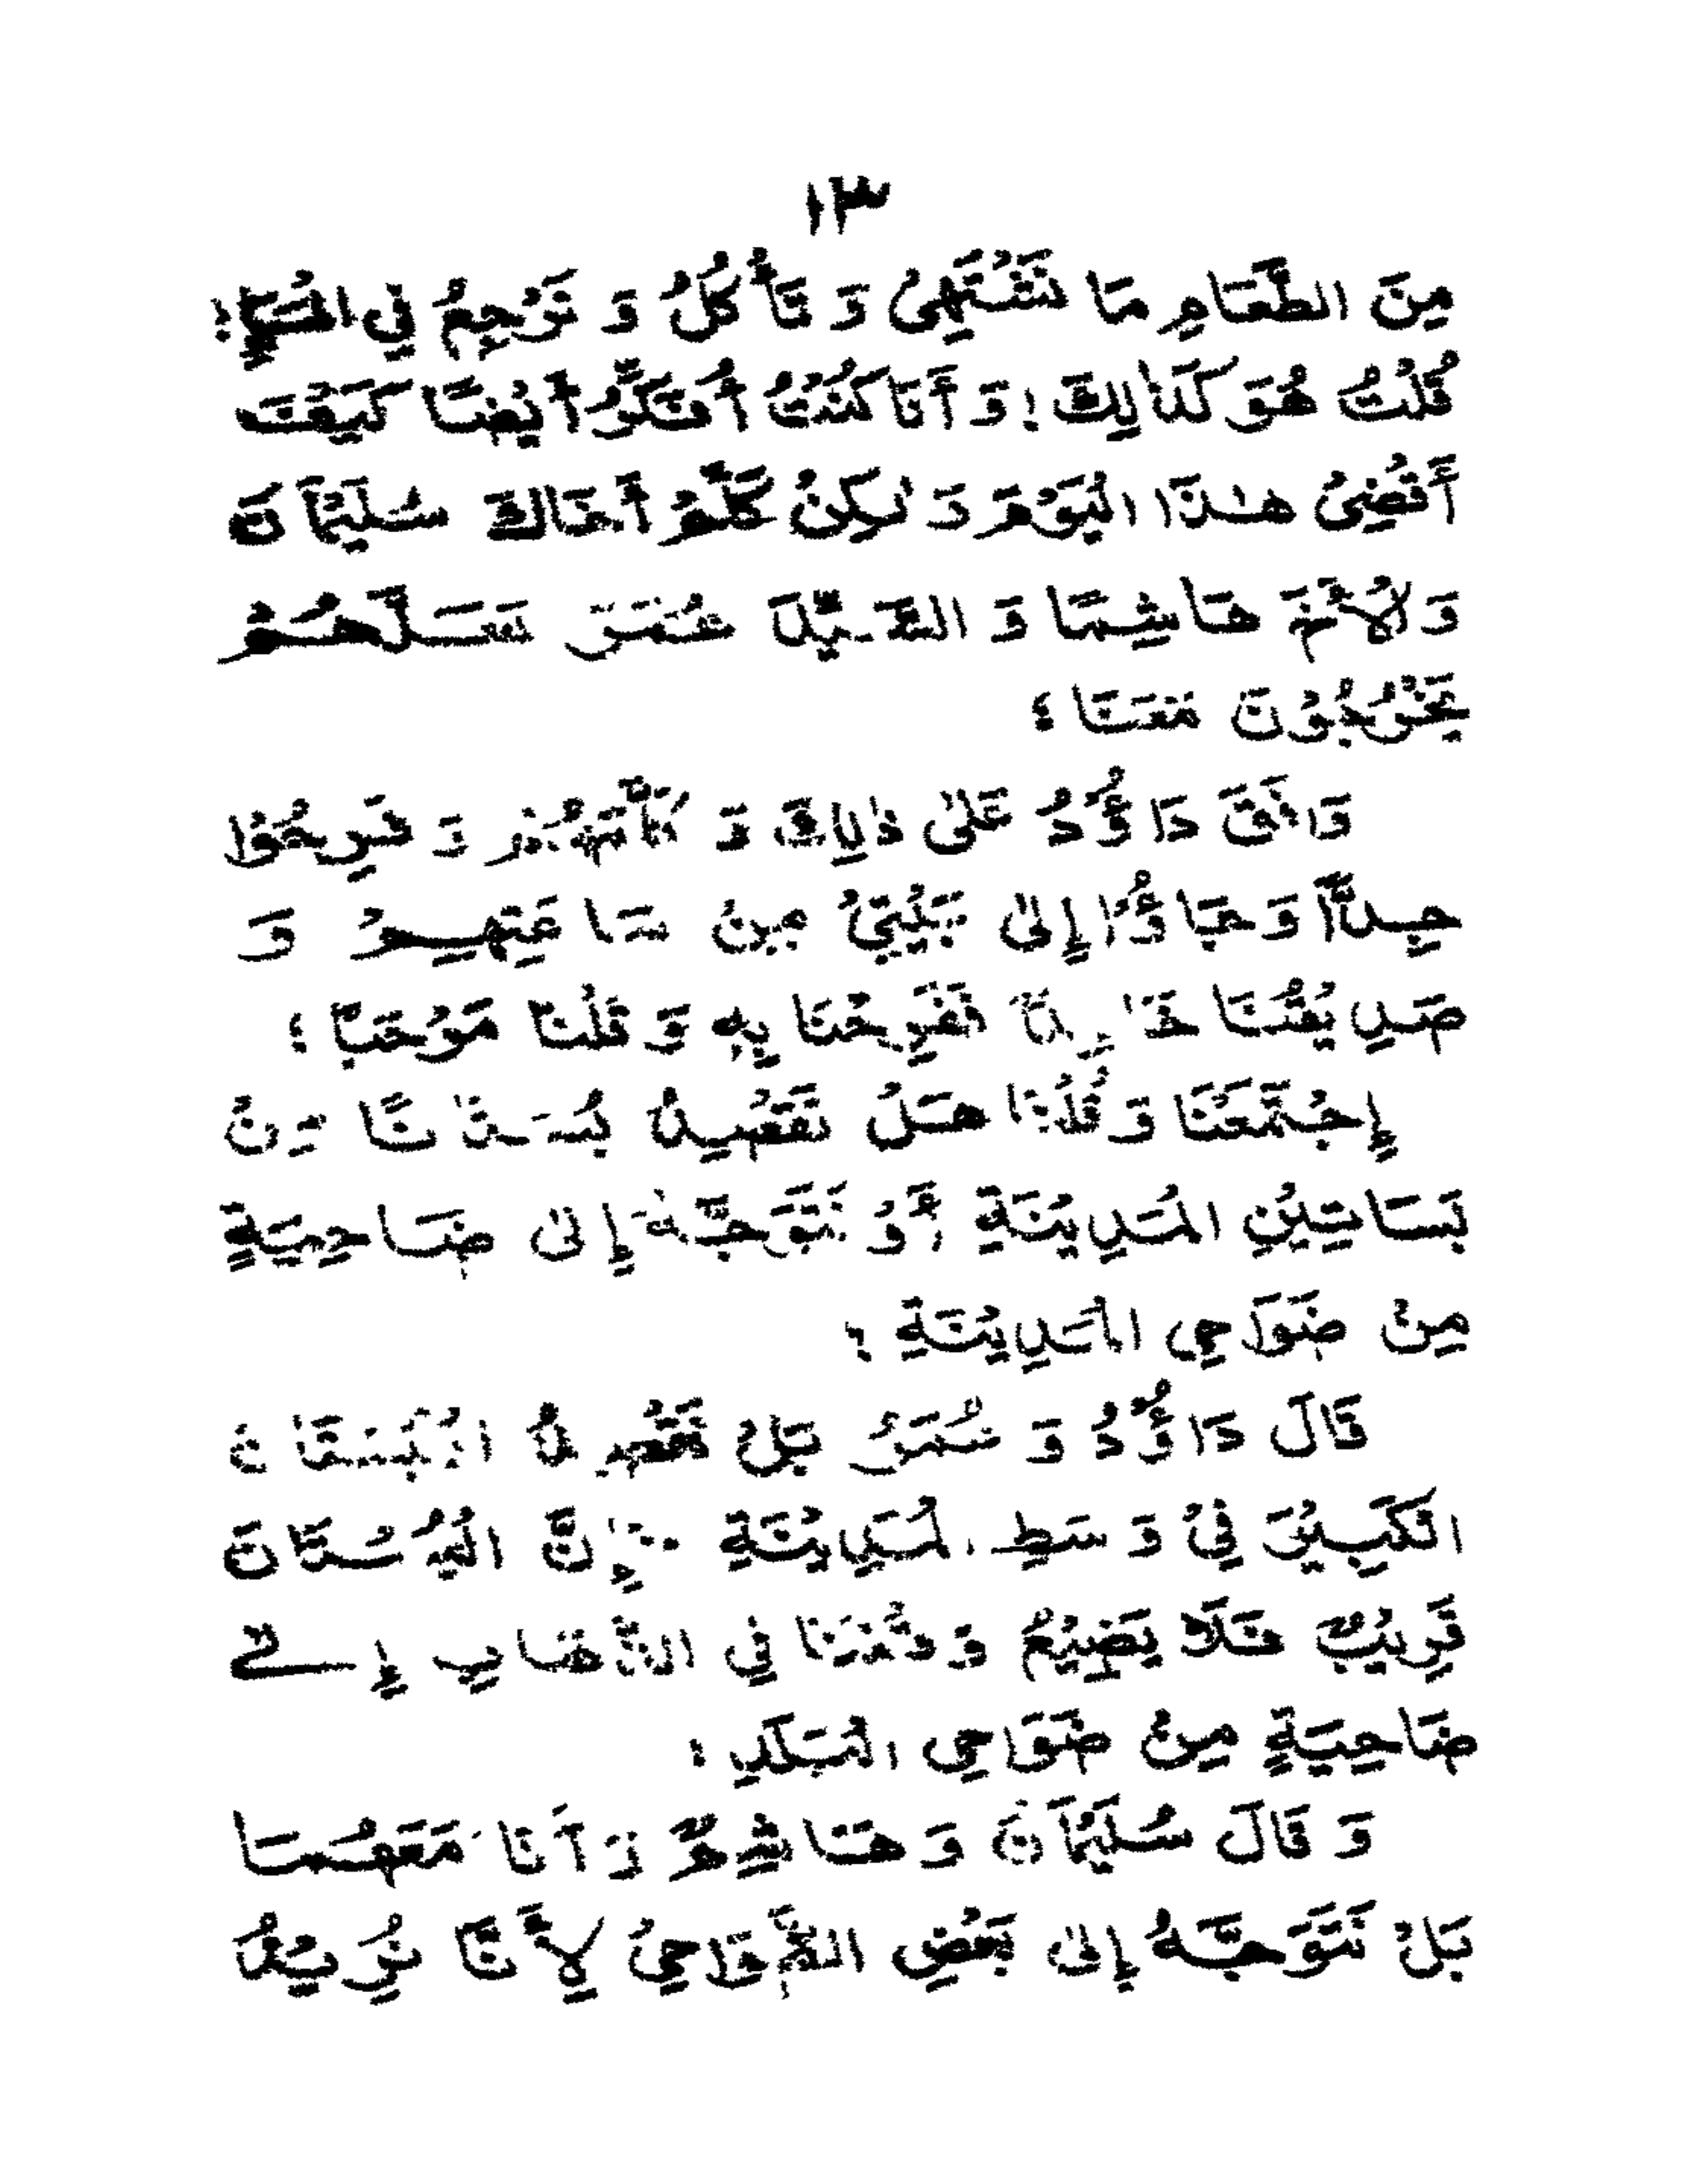 ١٣
مِنَ الطَّعَامِ مَا نَشْتَهِيْ وَ نَأْكُلُ وَ نَرْجِعُ فِي الْمَسَاءِ؛
قُلْتُ هُوَ كَذٰلِكَ! وَ أَنَا كُنْتُ أُفَكِّرُ أَيْضًا كَيْفَ
أَقْضِيْ هٰذَا الْيَوْمَ وَ لٰكِنْ كَلِّمْ أَخَاكَ سُلَيْمَانَ
وَ لْأُخْبِرْ هَاشِمًا وَ السَّيِّدَ عُمَرَ لَعَلَّهُمْ
يَخْرُجُوْنَ مَعَنَا؛
وَافَقَ دَاؤُدُ عَلٰى ذٰلِكَ وَ كَلَّمَهُمْ وَ فَرِحُوْا
جِدًّا وَ جَاؤُا إِلٰى بَيْتِيْ مِنْ سَاعَتِهِمْ وَ
صَدِيْقُنَا خَالِدٌ فَفَرِحْنَا بِهٖ وَ قُلْنَا مَرْحَبًا؛
إِجْتَمَعْنَا وَ قُلْنَا هَلْ نَقْصِدُ بُسْتَانًا مِنْ
بَسَاتِيْنِ الْمَدِيْنَةِ أَوْ نَتَوَجَّهُ إِلٰى ضَاحِيَةٍ
مِنْ ضَوَاحِي الْمَدِيْنَةِ ؟
قَالَ دَاؤُدُ وَ عُمَرُ بَلْ نَقْصِدُ الْبُسْتَانَ
الْكَبِيْرَ فِيْ وَسَطِ الْمَدِيْنَةِ فَإِنَّ الْبُسْتَانَ
قَرِيْبٌ فَلَا يَضِيْعُ وَقْتُنَا فِي الذَّهَابِ إِلٰى
ضَاحِيَةٍ مِنْ ضَوَاحِي الْبَلَدِ؛
وَ قَالَ سُلَيْمَانُ وَ هَاشِمٌ وَ أَنَا مَعَهُمَا
بَلْ نَتَوَجَّهُ إِلٰى بَعْضِ الضَّوَاحِيْ لِأَنَّا نُرِيْدُ